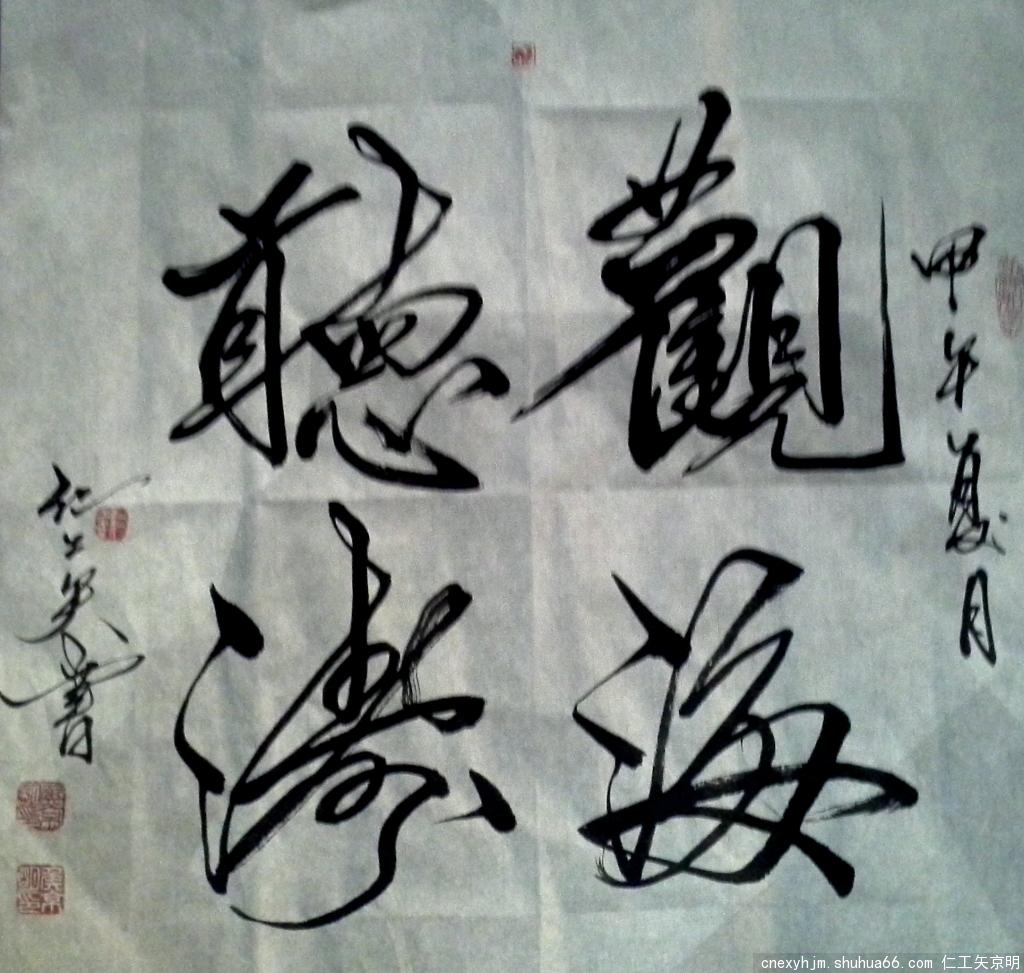 甲午夏月
觀海
聽濤
仁工矢書
cnexyhjm.shuhua66.com 仁工矢京明